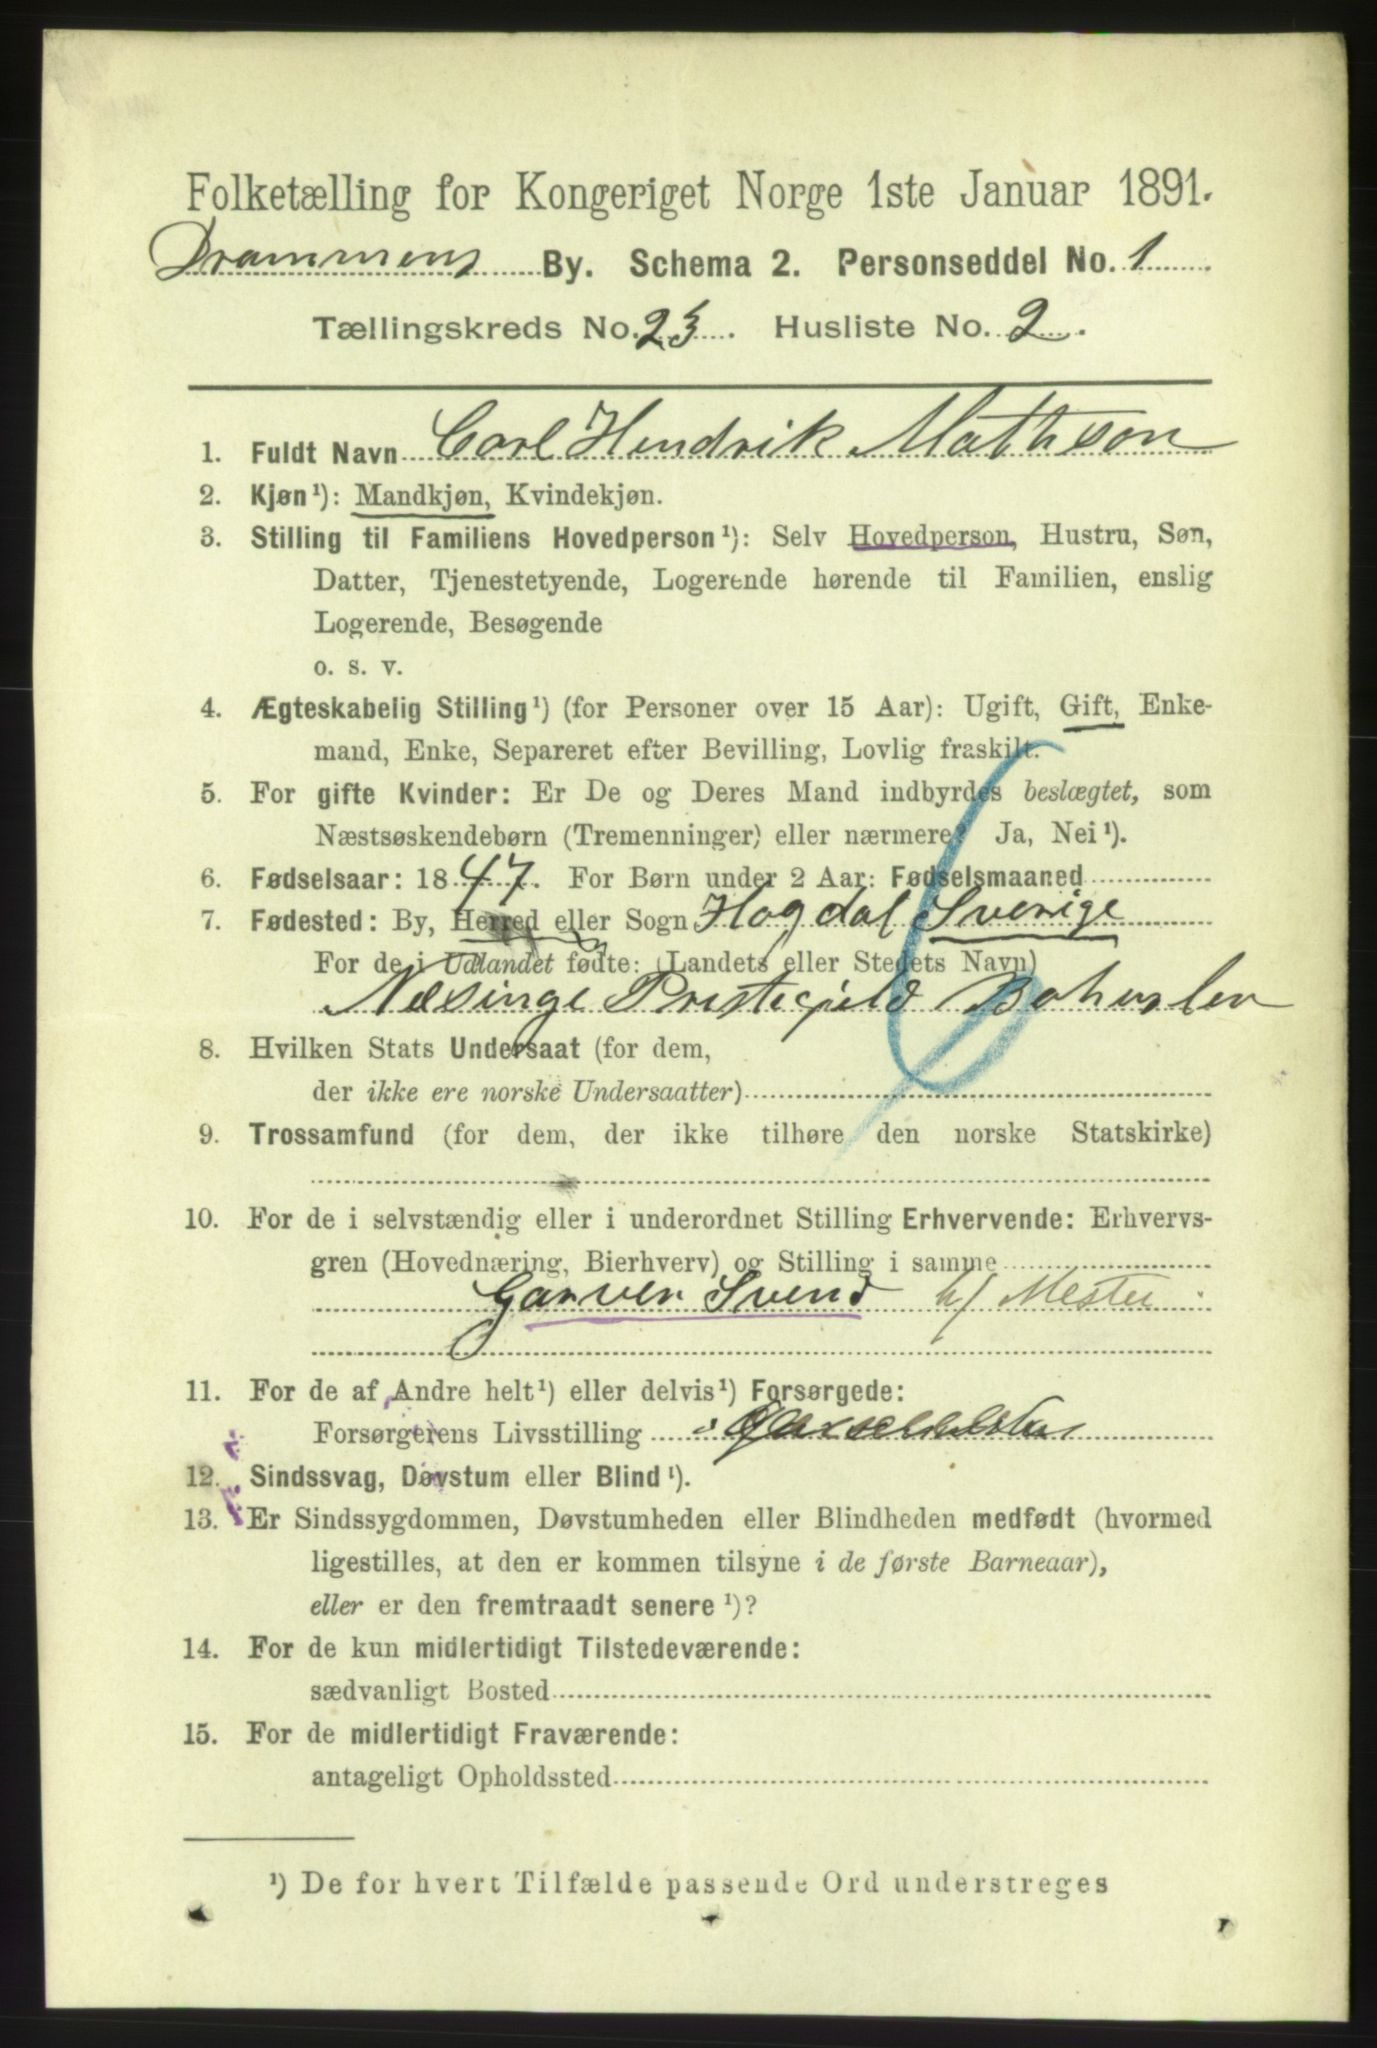 Folketælling for Kongeriget Norge 1ste Januar 1891.
Drammens By. Schema 2. Personseddel No. 1
Tællingskreds No. 23. Husliste No. 2.
1. Fuldt Navn Carl Hendrik Mathson
2. Kjøn¹): Mandkjøn, Kvindekjøn.
3. Stilling til Familiens Hovedperson¹): Selv Hovedperson, Hustru, Søn,
Datter, Tjenestetyende, Logerende hørende til Familien, enslig
Logerende, Besøgende
o. s. v.
4. Ægteskabelig Stilling¹) (for Personer over 15 Aar): Ugift, Gift, Enke-
mand, Enke, Separeret efter Bevilling, Lovlig fraskilt.
5. For gifte Kvinder: Er De og Deres Mand indbyrdes beslægtet, som
Næstsøskendebørn (Tremenninger) eller nærmere? Ja, Nei¹).
6. Fødselsaar: 1847. For Børn under 2 Aar: Fødselsmaaned
7. Fødested: By, Herred eller Sogn Hogdal Sverige
For de i Udlandet fødte: (Landets eller Stedets Navn)
Næsinge Prestegjeld Bohuslen
8. Hvilken Stats Undersaat (for dem,
der ikke ere norske Undersaatter)
9. Trossamfund (for dem, der ikke tilhøre den norske Statskirke)
10. For de i selvstændig eller i underordnet Stilling Erhvervende: Erhvervs-
gren (Hovednæring, Bierhverv) og Stilling i samme
Garver Svend h/ Mester
11. For de af Andre helt¹) eller delvis¹) Forsørgede:
Forsørgerens Livsstilling
12. Sindssvag, Døvstum eller Blind¹).
13. Er Sindssygdommen, Døvstumheden eller Blindheden medfødt (hvormed
ligestilles, at den er kommen tilsyne i de første Barneaar),
eller er den fremtraadt senere¹)?
14. For de kun midlertidigt Tilstedeværende:
sædvanligt Bosted
15. For de midlertidigt Fraværende:
antageligt Opholdssted
¹) De for hvert Tilfælde passende Ord understreges